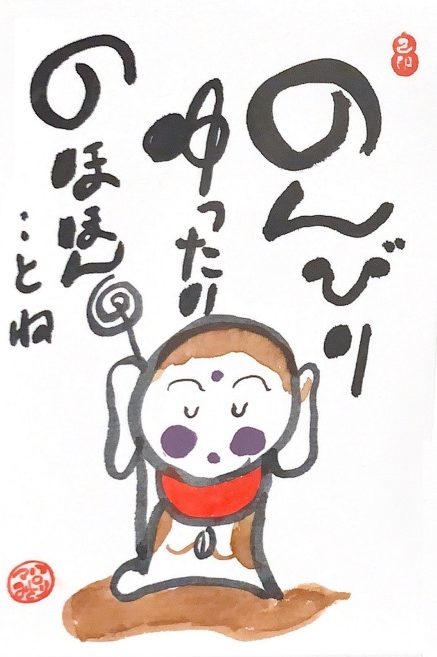 のんびり
ゆったり
のほほん
…とね